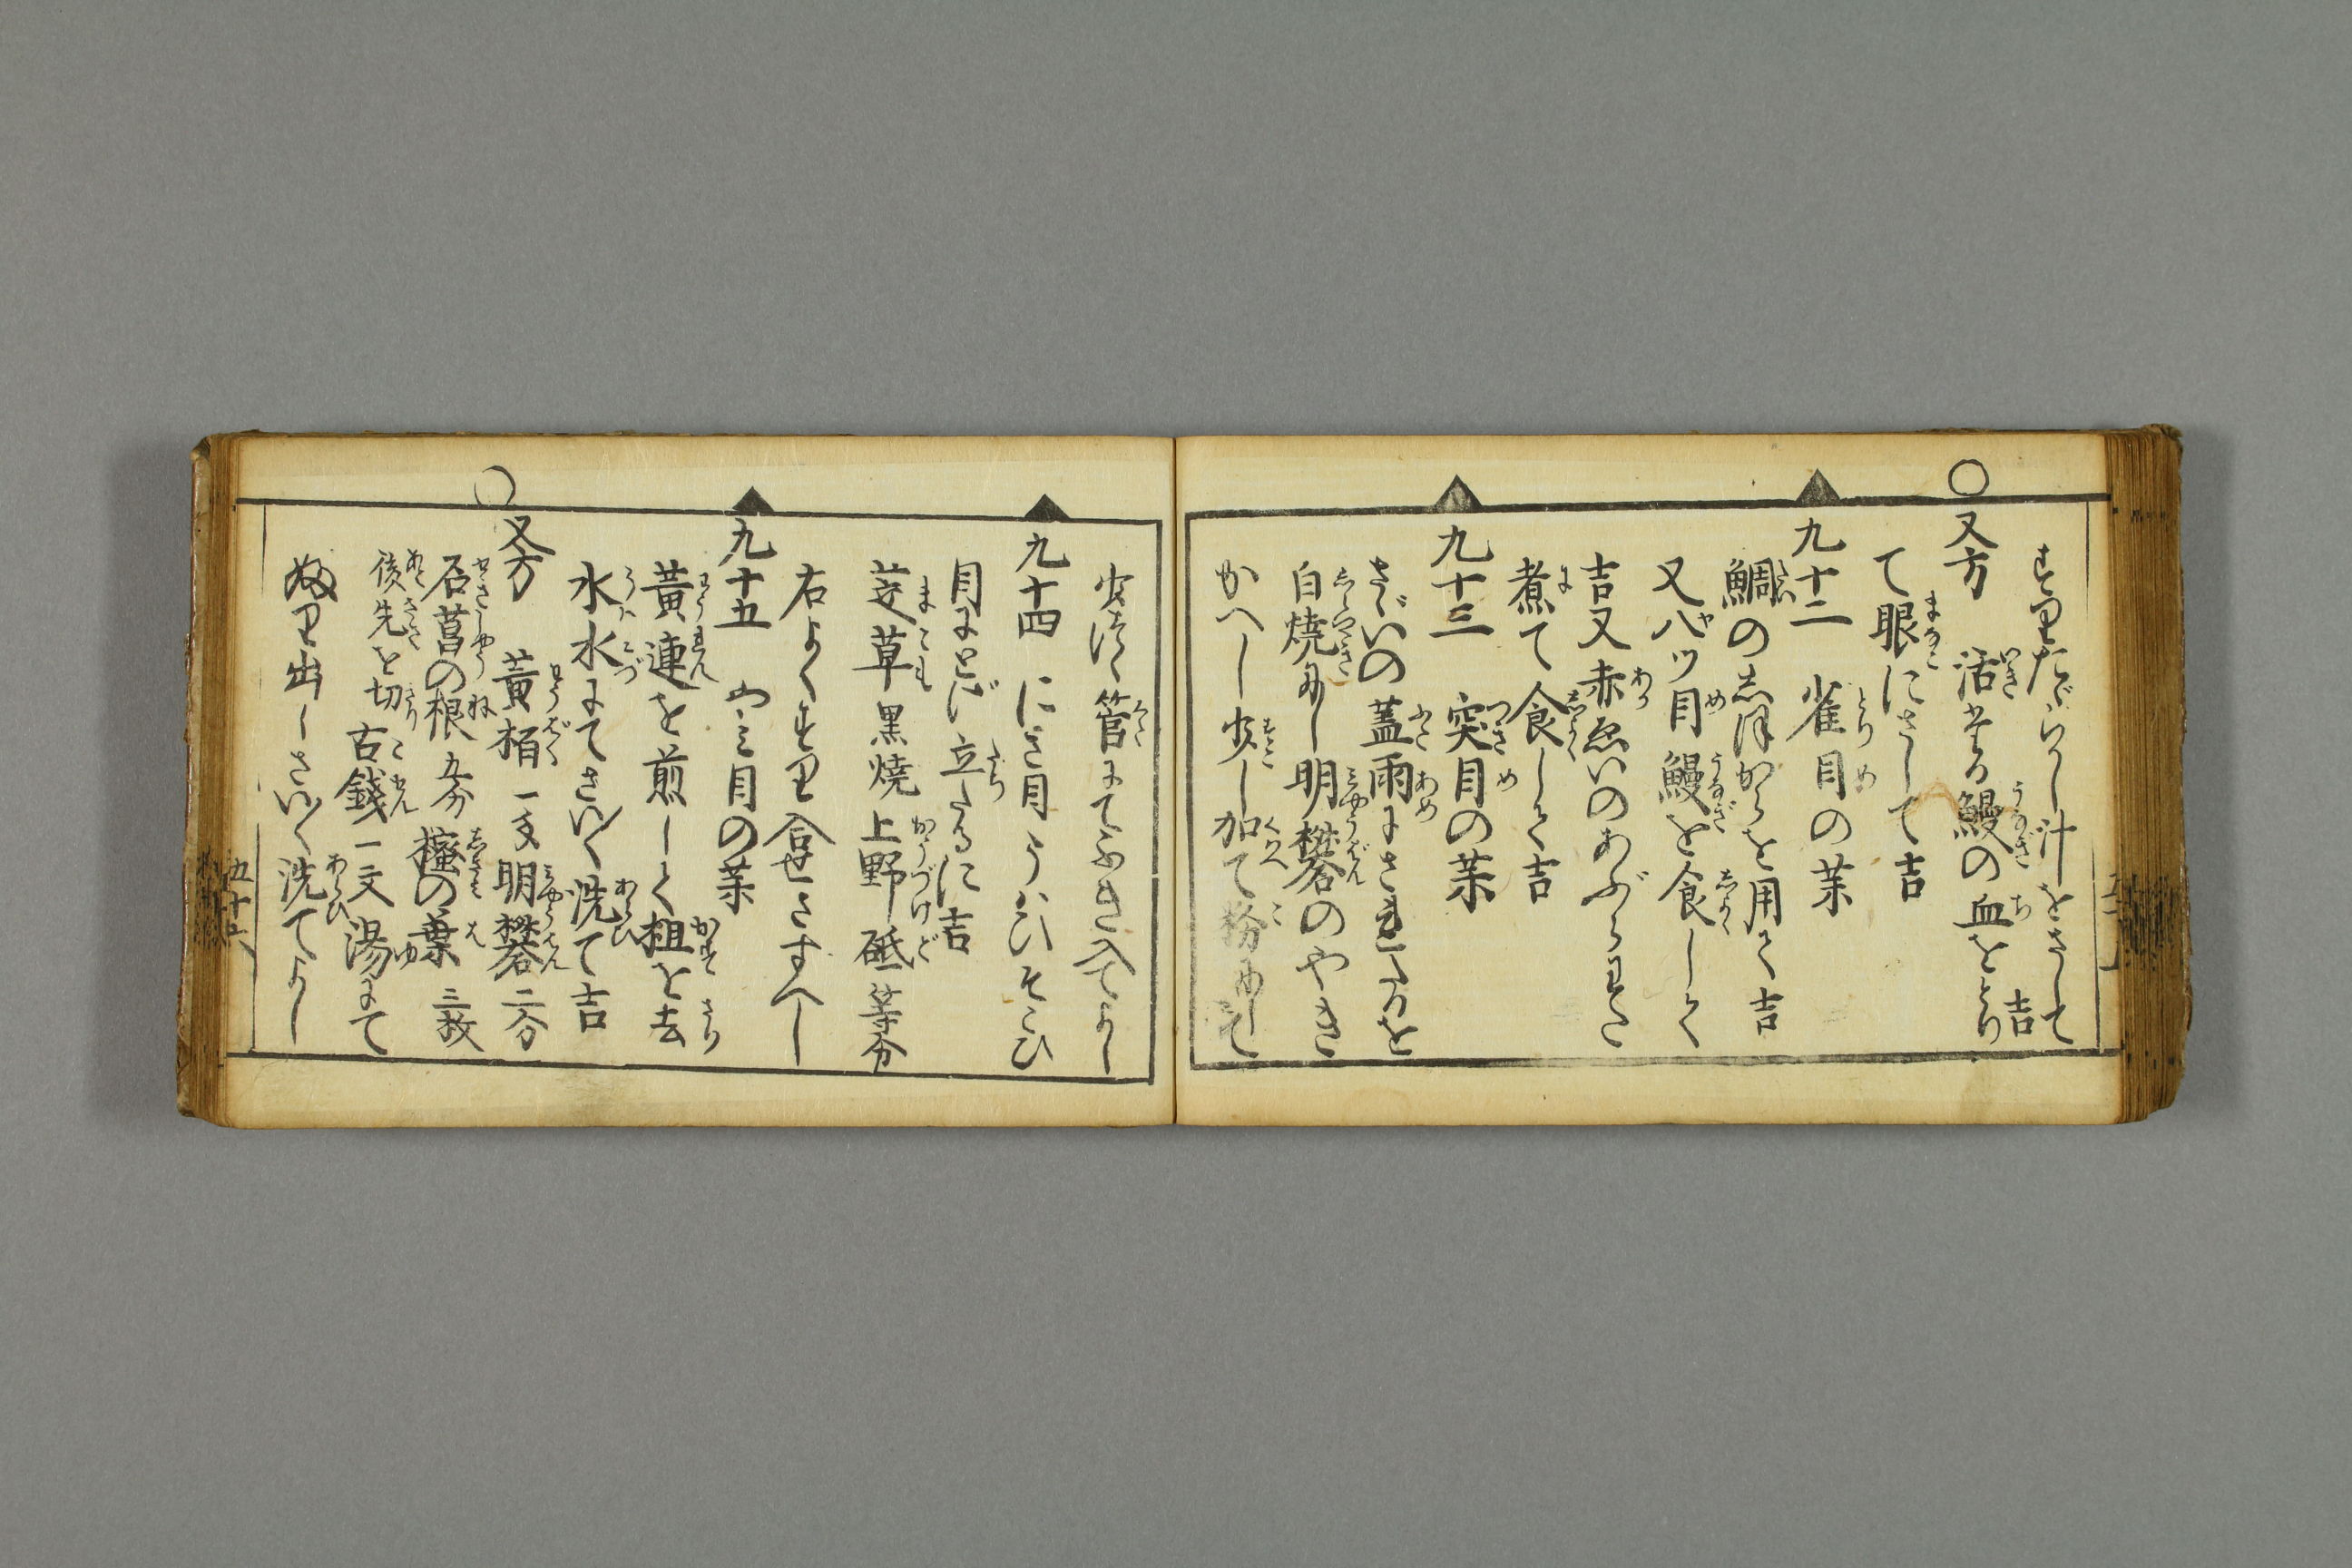 すりたゞらし汁をさして吉
又方 活たる鰻の血をとり
て眼にさして吉
九十二 雀目の薬
鯛のしほからを用て吉
又八ツ目鰻を食して
吉又赤ゑいのあぶらまた
煮て食して吉
九十三 突目の薬
さゞいの蓋雨にされたるを
白焼にし明礬のやき
かへし少し加て粉にして
少しづゝ管にてふき入てよし
九十四 にき目うハひそこひ
目にとげ立たるに吉
芝草黒焼上野砥等分
右よくすり合せさすへし
九十五 やみ目の薬
黄連を煎して粗を去
水水にてさい〳〵洗て吉
又方 黄栢一匁明礬二分
石菖の根五分樒の葉三枚
後先を切古銭一文湯にて
ふり出しさい〳〵洗てよし
五十六